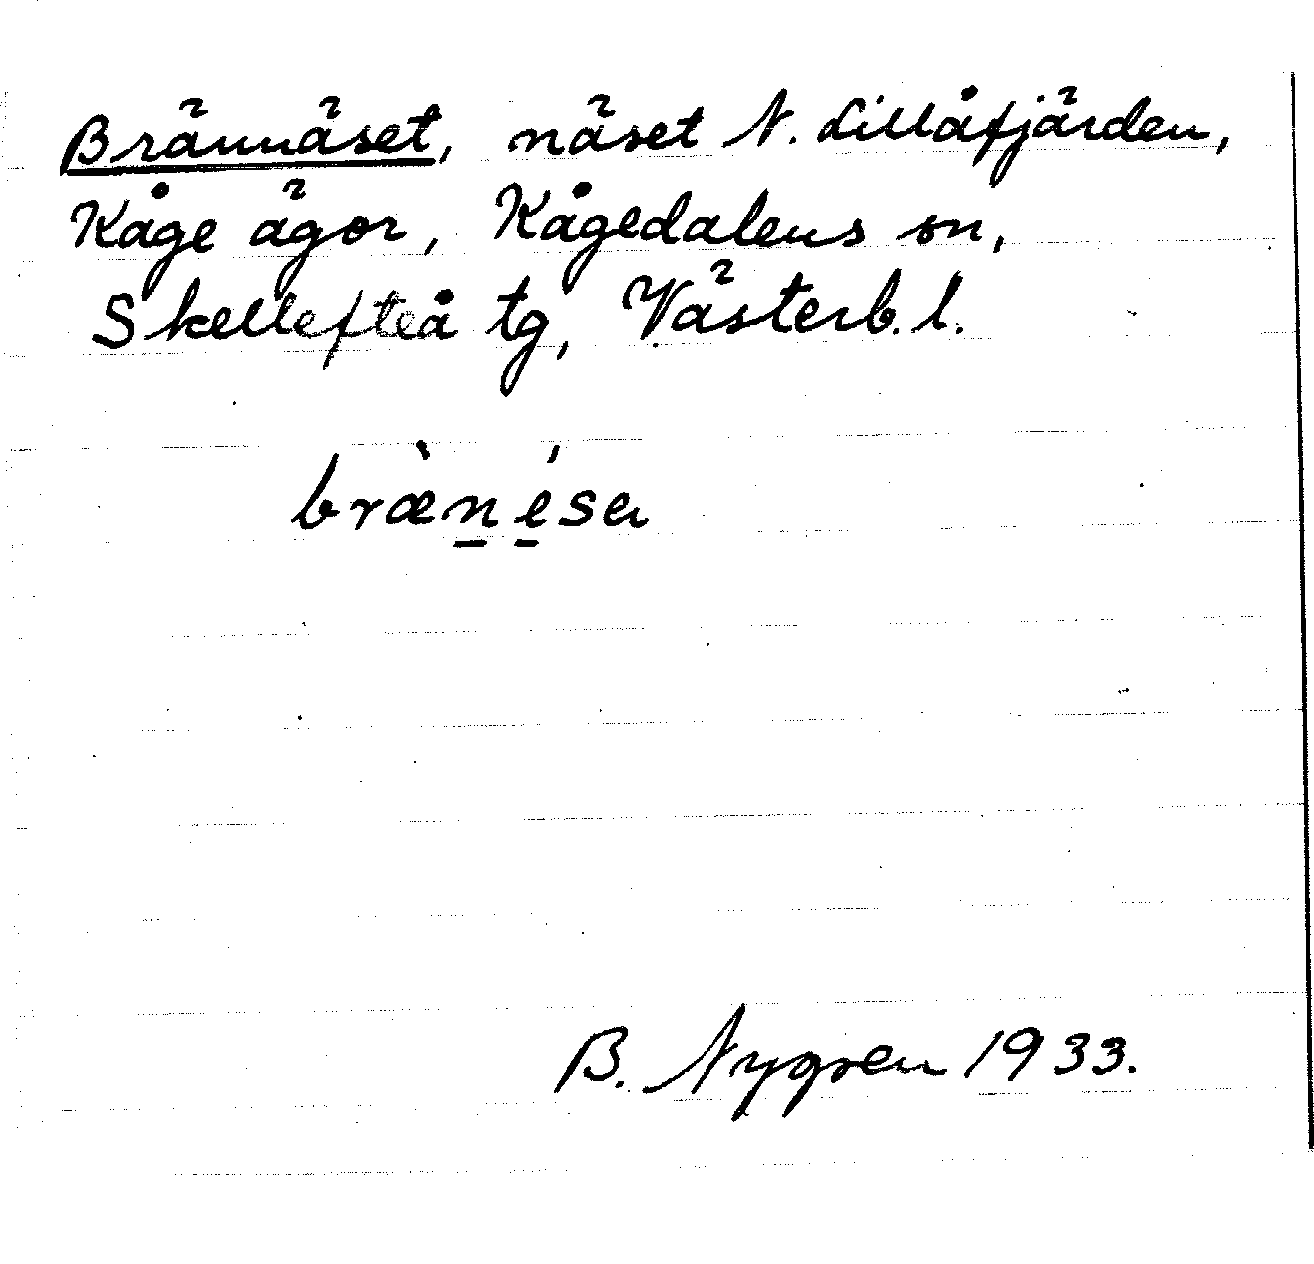 Brännäset, näset N. Lillåfjärden,
Kåge ägor, Kågedalens sn,
Skellefteå tg, Västerb. l.
bræ̀n̲é̲sa
B. Nygren 1933.